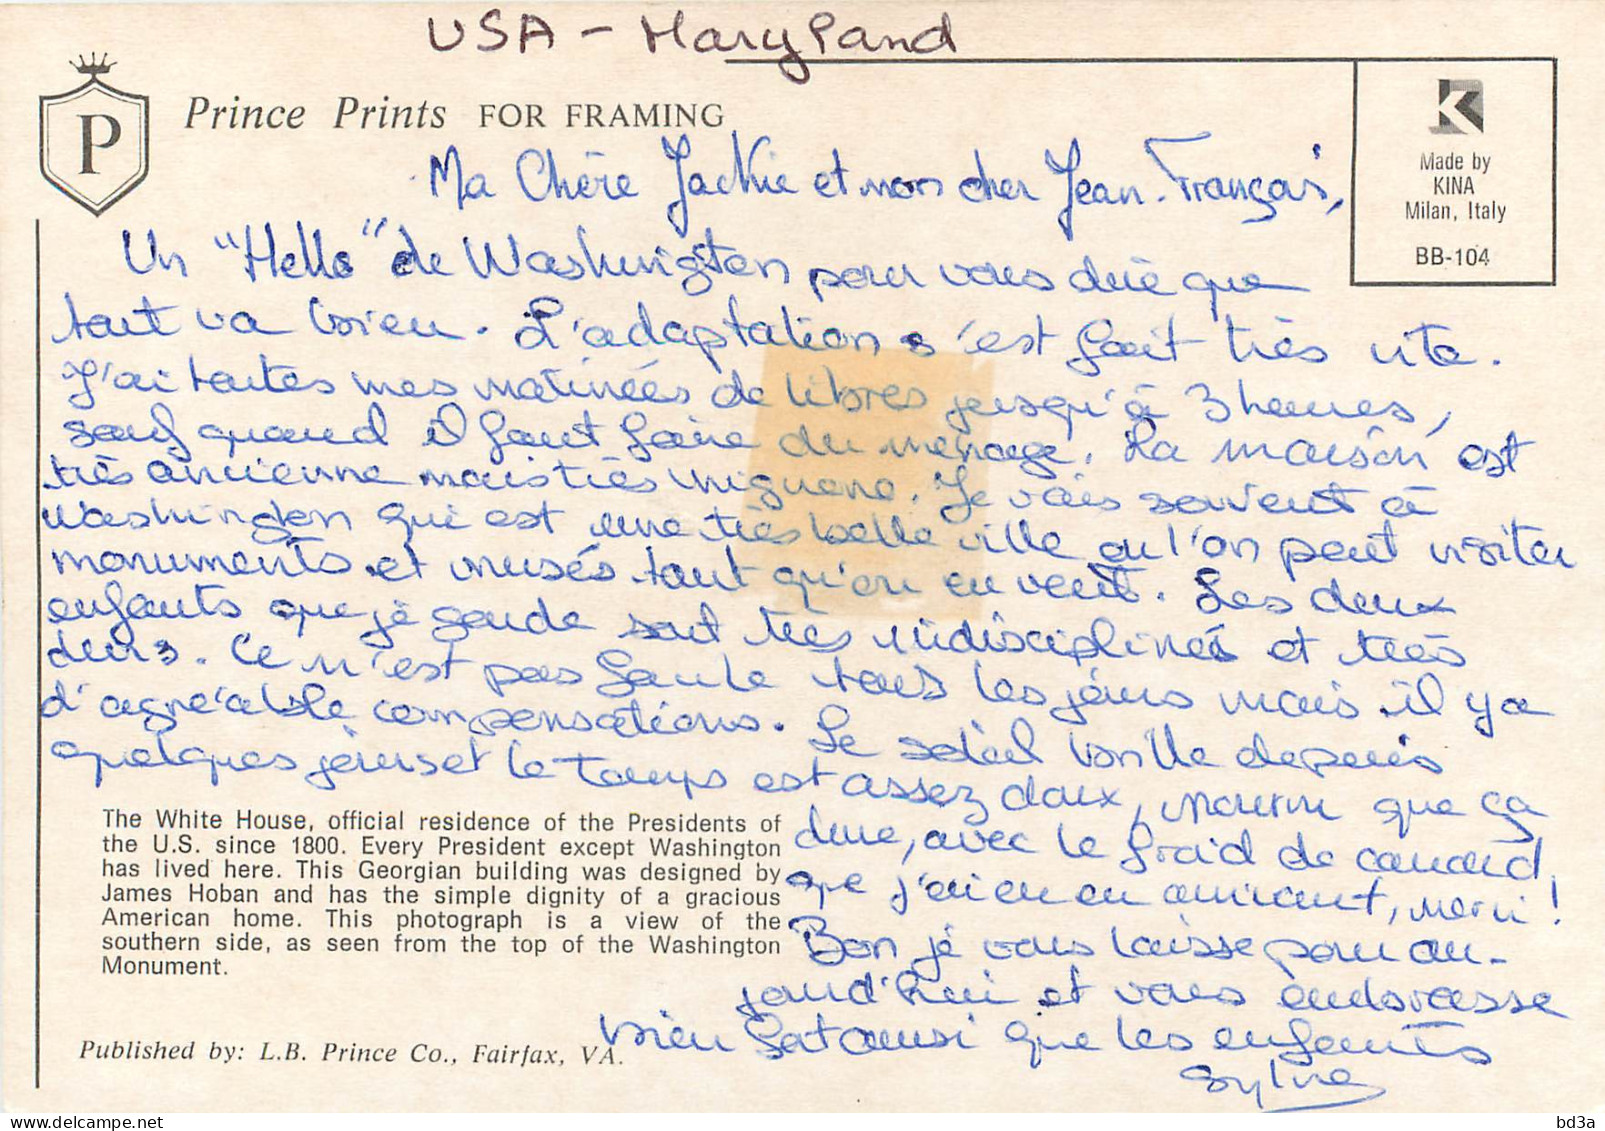 USA - Maryland
P
Prince Prints FOR FRAMING
K
Made by
KINA
Milan, Italy
BB-104
Ma Chère Jackie et mon cher Jean-François,
Un "Hello" de Washington pour vous dire que
tout va bien. L'adaptation s'est fait très vite.
J'ai toutes mes matinées de libres jusqu'à 3 heures,
sauf quand il faut faire du ménage. La maison est
très ancienne mais très mignone. Je vais souvent à
Washington qui est une très belle ville ou l'on peut visiter
monuments et musés tant qu'on en veut. Les deux
enfants que je garde sont très indisciplinés et très
durs. Ce n'est pas facile tous les jours mais il y a
d'agréable compensations. Le soleil brille depuis
quelques jours et le temps est assez doux, pourvu que ça
dure, avec le froid de canard
que j'ai eu en arrivant, merci!
Bon je vous laisse pour au-
jourd'hui et vous embrasse
bien fort ainsi que les enfants
Sylvie
The White House, official residence of the Presidents of
the U.S. since 1800. Every President except Washington
has lived here. This Georgian building was designed by
James Hoban and has the simple dignity of a gracious
American home. This photograph is a view of the
southern side, as seen from the top of the Washington
Monument.
Published by: L.B. Prince Co., Fairfax, VA.
bd3a